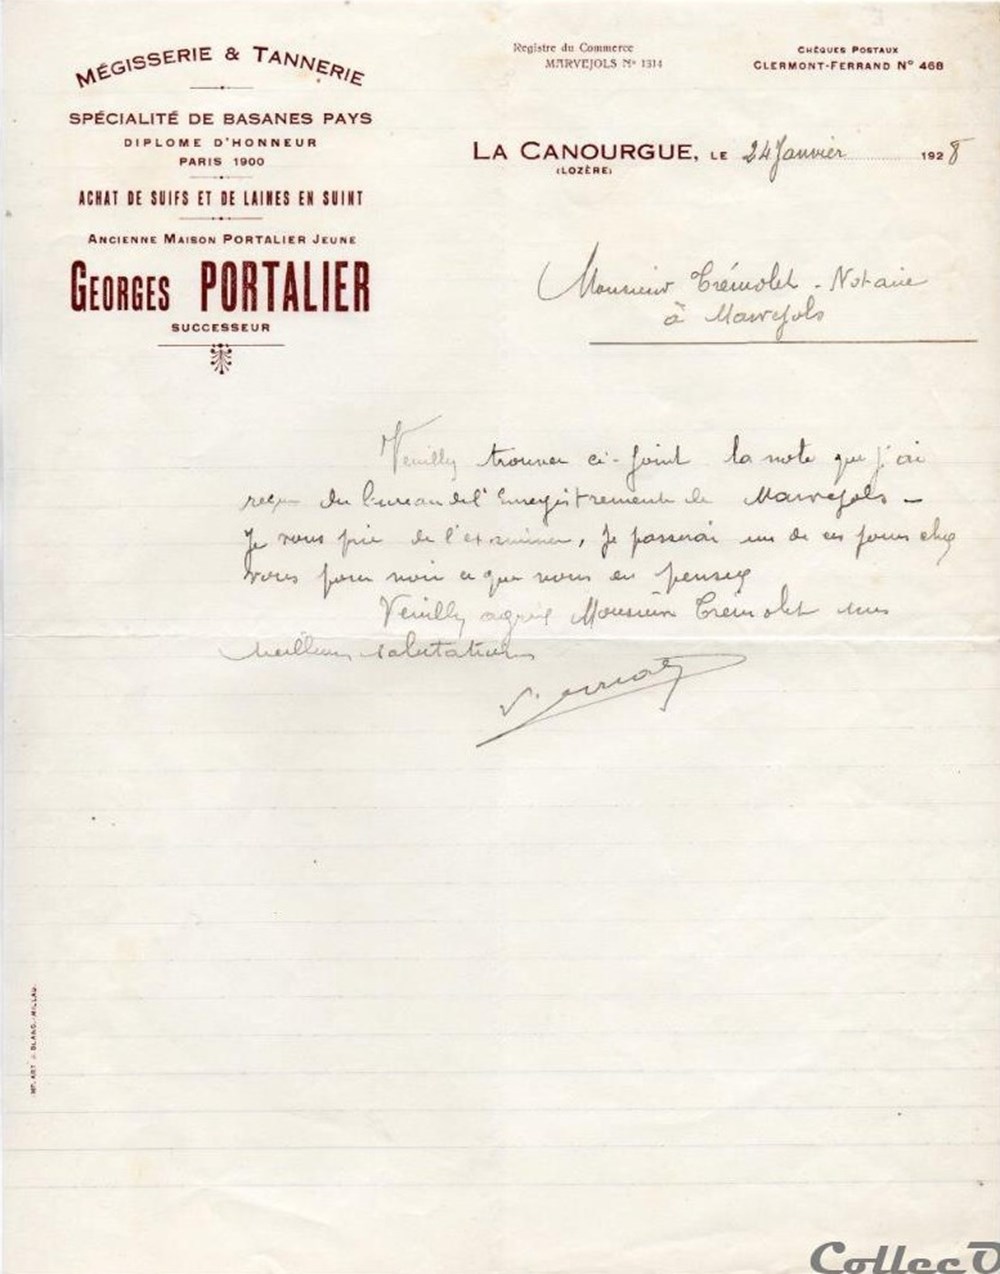 MÉGISSERIE & TANNERIE
SPÉCIALITÉ DE BASANES PAYS
DIPLOME D'HONNEUR
PARIS 1900
ACHAT DE SUIFS ET DE LAINES EN SUINT
ANCIENNE MAISON PORTALIER JEUNE
GEORGES PORTALIER
SUCCESSEUR
Registre du Commerce
MARVEJOLS No 1314
CHÈQUES POSTAUX
CLERMONT-FERRAND No 468
LA CANOURGUE, LE 24 Janvier 1928
(LOZÈRE)
Monsieur Trémolet - Notaire
à Marvejols
Veuillez trouver ci-joint la note que j'ai
reçue du bureau de l'Enregistrement de Marvejols -
Je vous prie de l'examiner, je passerai un de ces jours chez
vous pour voir ce que vous en pensez
Veuillez agréer Monsieur Trémolet mes
meilleures salutations
IMP. ART. J. BLANC. MILLAU.
CollecO